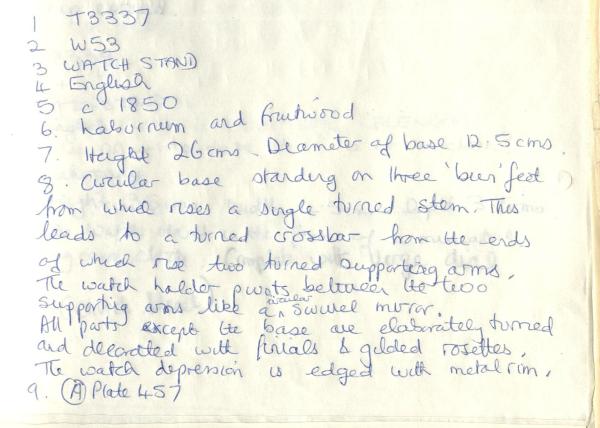 1 T3337
2 W53
3 WATCH STAND
4 English
5 c 1850
6. Laburnum and fruitwood
7. Height 26cms. Diameter of base 12.5cms.
8. Circular base standing on three 'bun' feet
from which rises a single turned stem. This
leads to a turned crossbar from the ends
of which rise two turned supporting arms.
The watch holder pivots between the two
supporting arms like a circular swivel mirror.
All parts except the base are elaborately turned
and decorated with finials & gilded rosettes.
The watch depression is edged with metal rim.
9. A Plate 457